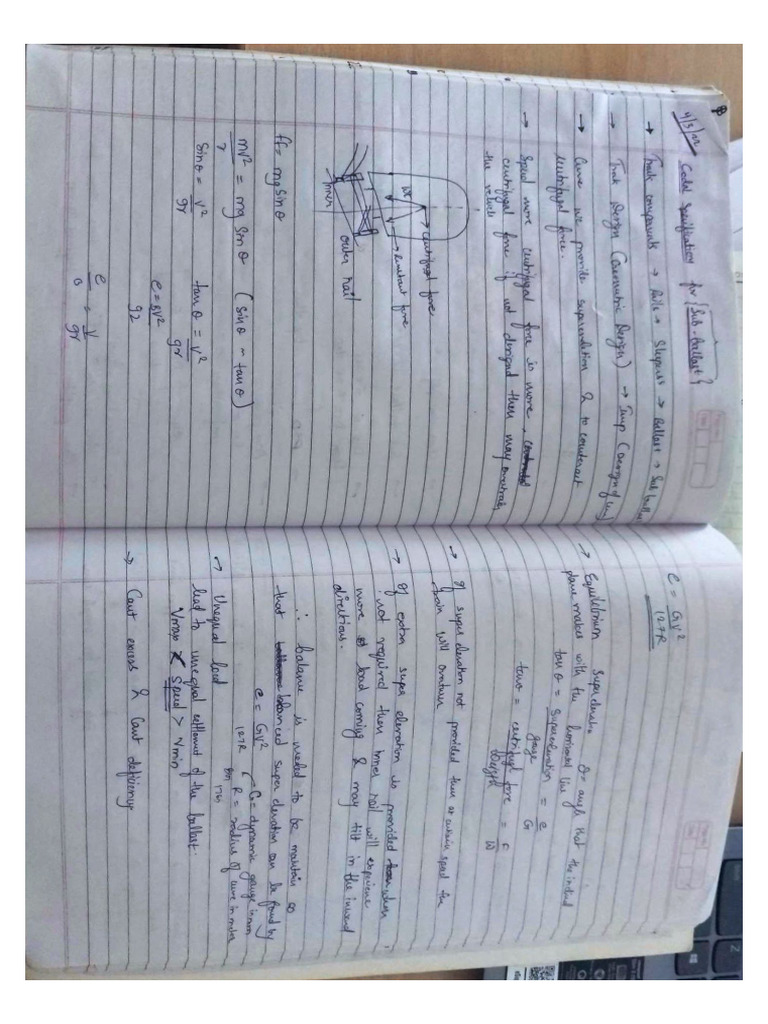 4/3/22 Codal Specification for {Sub-Ballast}
→ Track components → Rails → Sleepers → Ballast → Sub ballast
→ Track Design (Geometric Design) →
→ Curve we provide superelevation & to counteract
centrifugal force.
→ Speed more centrifugal force is more,
centrifugal force if not designed then may overturn
the vehicle
→ centrifugal force
wt
→ Resultant force
outer rail
inner
ff = mg sin θ
mv² / r = mg sin θ (sin θ ~ tan θ)
sin θ = v² / gr tan θ = v² / gr
e = Gv² / gr
e / G = v / gr
e = Gv² / 127R
→ Equilibrium superelevation θ = angle that the inclined
plane makes with the horizontal line
tan θ = Superelevation / gauge = e / G
tan θ = centrifugal force / Weight = F / W
→ If super elevation not provided then at certain speed the
train will overturn
→ If extra super elevation is provided when
not required then inner rail will experience
more load coming & may tilt in the inward
directions.
∴ balance is needed to be maintain so
that balanced super elevation can be found by
e = Gv² / 127R G = dynamic gauge in mm
R = radius of curve in meter
1750
→ Unequal load
lead to unequal settlement of the ballast.
Vmax < Speed > Vmin
→ Cant excess & Cant deficiency